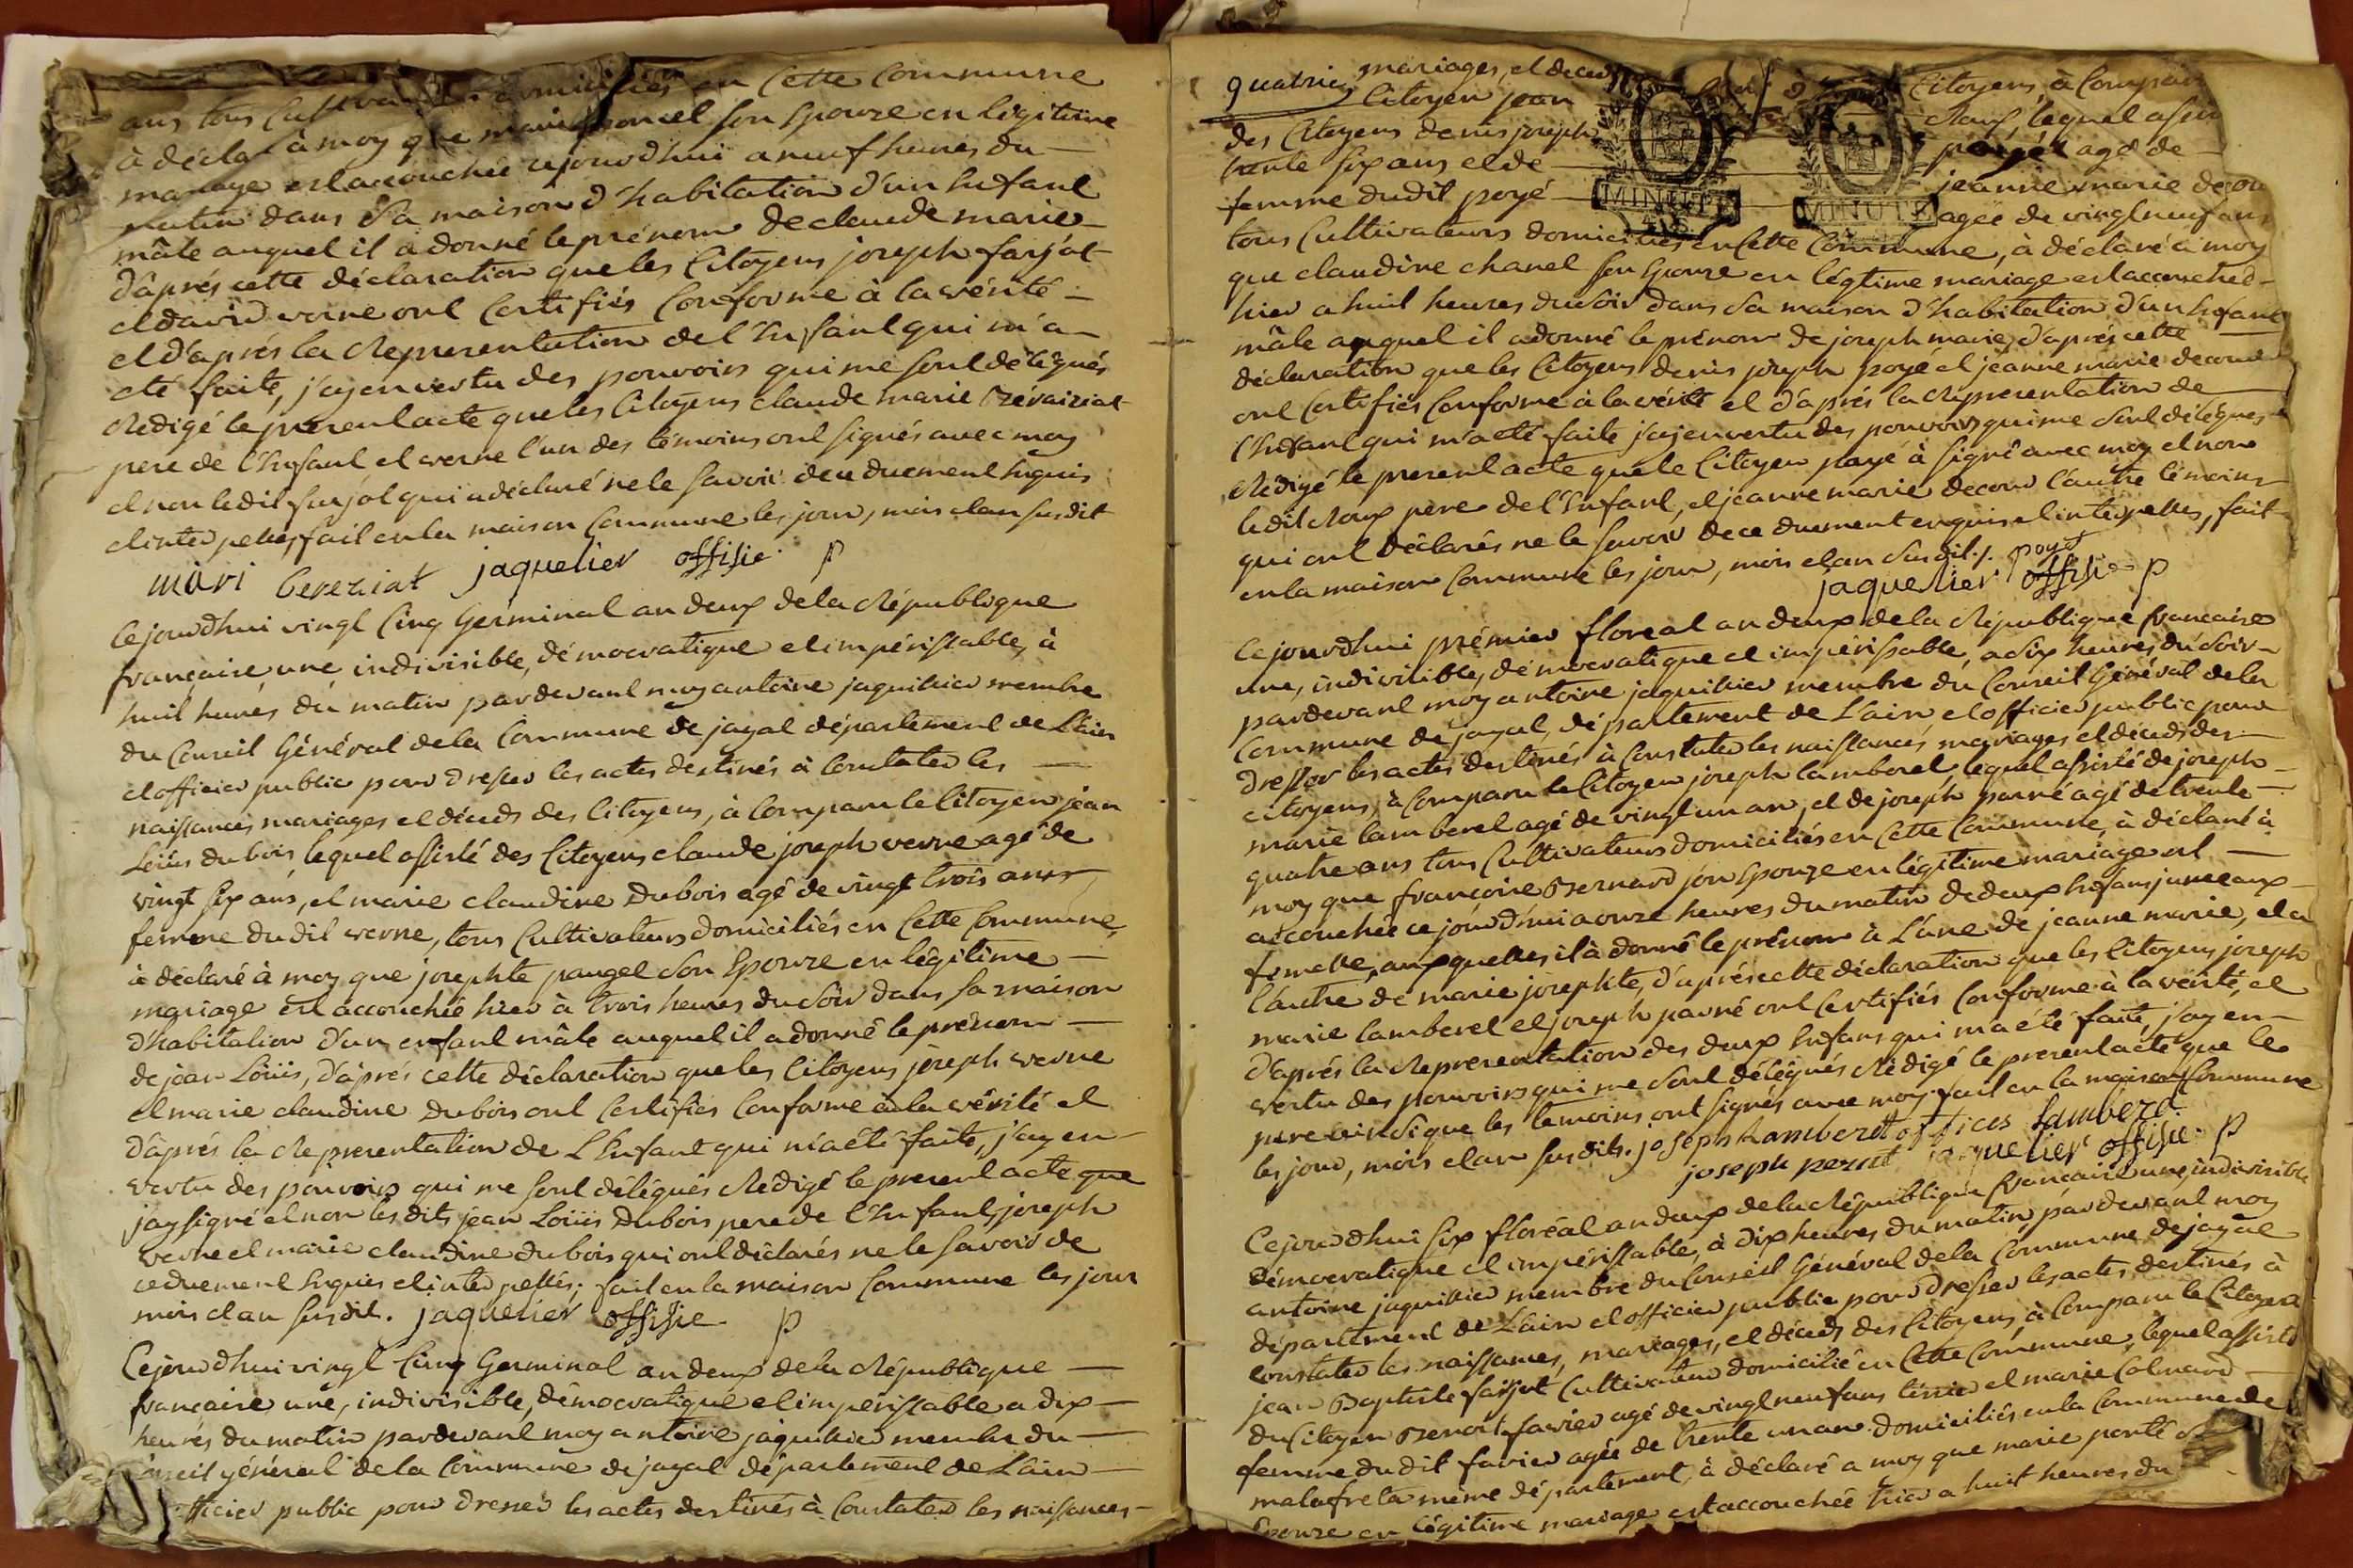 ans tous Cultivateurs domiciliés en Cette Commune
à déclaré à moy que marie poncel son Epouze en légitime
mariage est accouchée cejourd'hui a neuf heures du
matin dans Sa maison d'habitation d'un Enfant
mâle auquel il a donné le prénom de claude marie
d'aprés cette déclaration que les Citoyens joseph farjot
et david verne ont Certifiés Conforme à la vérité
et d'aprés la Representation de l'Enfant qui m'a
eté faite, j'ay en vertu des pouvoirs qui me sont délégués
Redigé le present acte que les Citoyens claude marie Bévaiziat
pere de l'Enfant et verne l'un des témoins ont signés avec moy
et non le dit farjot qui a déclaré ne le savoir de ce duement Enquis
et interpellés, fait en la maison Commune les jour, mois et an susdit
mari bereziat jaquelier offisie p
Cejourd'hui vingt Cinq Germinal an deux de la République
française une indivisible, démocratique et impérissable, à
huit heures du matin pardevant moy antoine jaquillier membre
du Conseil Général de la Commune de jayat département de L'ain
et officier public pour dresser les actes destinés à Constater les
naissances mariages et décéds des Citoyens, à Comparu le Citoyen jean
Loüis dubois lequel assisté des Citoyens claude joseph verne agé de
vingt six ans, et marie claudine Dubois agé de vingt trois ans
femme du dit verne, tous Cultivateurs domiciliés en Cette Commune,
à déclaré à moy que josephte pauget Son Epouze en légitime
mariage est accouchée hier à trois heures du Soir dans sa maison
d'habitation d'un enfant mâle auquel il a donné le prénom
de jean Loüis, d'aprés cette déclaration que les Citoyens joseph verne
et marie claudine Dubois ont Certifiés Conforme à la vérité et
d'aprés la Representation de L'Enfant qui m'a été faite, j'ay en
vertu des pouvoirs qui me sont délégués Redigé le present acte que
j'ay signé et non les dits jean Loüis Dubois pere de l'Enfant, joseph
verne et marie claudine dubois qui ont déclarés ne le savoir de
ce duement Enquis et interpellés; fait en la maison Commune les jour
mois et an susdit. jaquelier offisie p
Cejourd'hui vingt Cinq Germinal an deux de la République
française une, indivisible, démocratique et impérissable a dix
heures du matin pardevant moy antoine jaquillier membre du
Conseil général de la Commune de jayat département de L'ain
officier public pour dresser les actes destinés à Constater les naissances
mariages, et décéds des Citoyens, à Comparu
quatrie Citoyen jean Roux, lequel assisté
des Citoyens denis joseph poyé agé de
trente six ans et de jeanne marie decour
femme dudit poyé agée de vingt neuf ans
MINUTE MINUTE
tous Cultivateurs domiciliés en Cette Commune, à déclaré à moy
que claudine chanel son Epouze en légtime mariage est accouchée
hier a huit heures du Soir dans Sa maison d'habitation d'un Enfant
mâle auquel il a donné le prénom de joseph marie, d'aprés cette
déclaration que les Citoyens denis joseph poyé et jeanne marie decour
ont Certifiés Conforme à la vérité et d'aprés la Representation de
l'Enfant qui m'a eté faite j'ay en vertu des pouvoirs qui me Sont délégués
Rédigé le present acte que le Citoyen poyé à signé avec moy et non
le dit Roux pere de l'Enfant, et jeanne marie decour l'autre témoins
qui ont déclarés ne le savoir de ce duement enquis et interpellés, fait
en la maison Commune les jour, mois et an Susdit./. poyet
jaquelier offisie p
Cejourd'hui prémier floreal an deux de la République francaise
une, indivisible, démocratique et impérissable, a Six heures du Soir
pardevant moy antoine jaquillier membre du Conseil Général de la
Commune de jayat, département de L'ain et officier public pour
dresser les actes destinés à Constater les naissances mariages et décéds des
Citoyens, à Comparu le Citoyen joseph lamberel, lequel assisté de joseph
marie lamberel agé de vingt un an, et de joseph parné agé de trente
quatre ans tous Cultivateurs domiciliés en Cette Commune, à déclaré à
moy que françoise Bernard son Epouze en légitime mariage est
accouchée ce jourd'hui a onze heures du matin de deux Enfans jumeaux
femelle, auxquelles il à donné le prénom à L'une de jeanne marie, et a
l'autre de marie josephte, d'aprés cette déclaration que les Citoyens joseph
marie lamberel et joseph parné ont Certifiés Conforme à la vérité, et
d'aprés la Representation des deux Enfans qui m'a été faite, j'ay en
vertu des pouvoirs qui me Sont délégués Rédigé le present acte que le
pere ainsi que les temoins ont signés avec moy. fait en la maison Commune
les jour, mois et an susdits. joseph lamberet offices lambere
joseph pernet jaquelier offisie p
Cejourd'hui six floréal an deux de la République française une, indivisible
démocratique et impérissable, à dix heures du matin, pardevant moy
antoine jaquillier membre du Conseil Général de la Commune de jayat
département de L'ain et officier public pour dresser les actes destinés à
constater les naissances, mariages, et décéds des Citoyens, à Comparu le Citoyen
jean Baptiste farjot Cultivateur domicilié en Cette Commune, lequel assisté
du Citoyen Benoit favier agé de vingt neuf ans et marie Colmard
femme du dit favier agée de trente un an domiciliés en la Commune de
malafretas même département, à déclaré a moy que marie ponté
Epouze en légitime mariage est accouchée hier a huit heures du